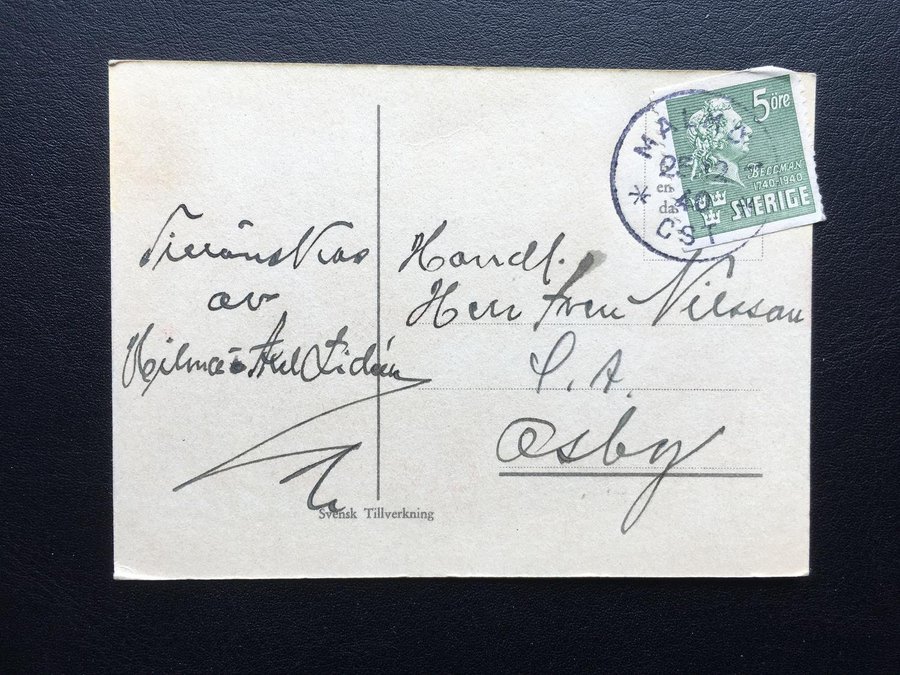 av
Hilma o Axel Lidén
Handl.
Herr Sven Nilsson
S. A.
Osby
Svensk Tillverkning
MALMÖ
40
ÖST
en
da
5 öre
BELLMAN
1740-1940
SVERIGE